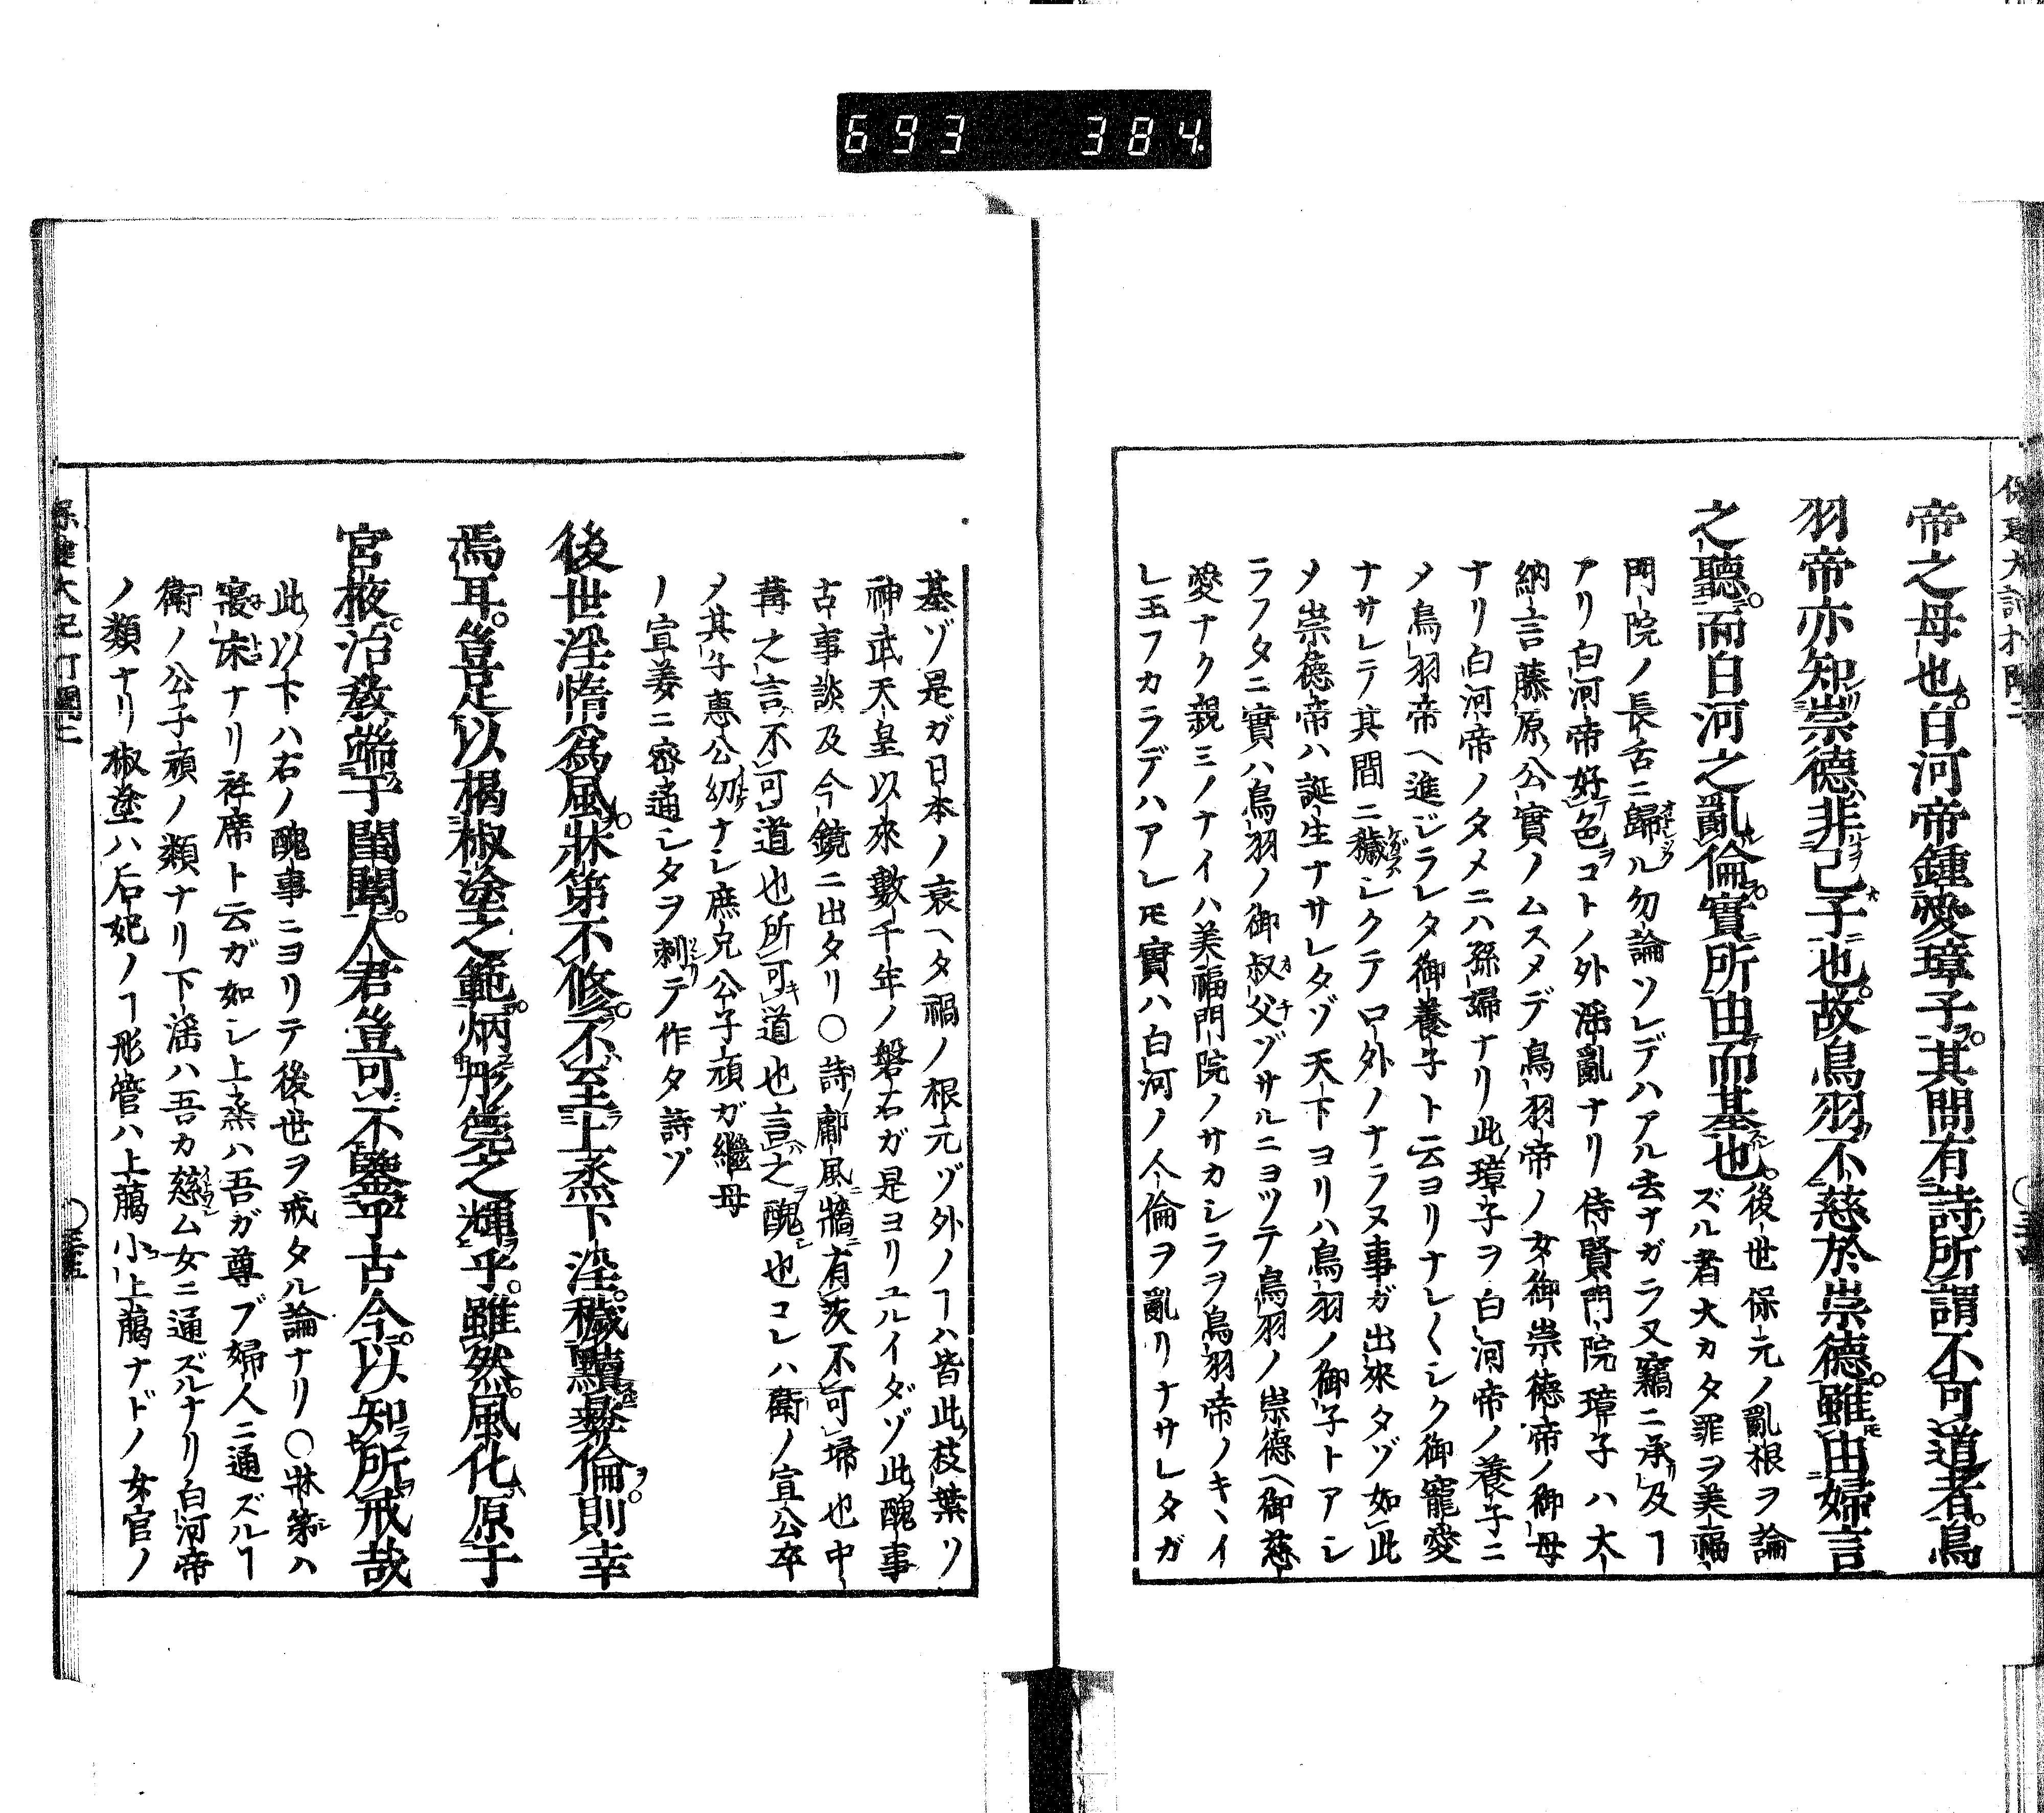 693 384.
帝之母也。白河帝鍾愛璋子。其間有詩所謂不可道者。鳥
羽帝亦知崇德非己子也。故鳥羽不慈於崇德。雖由婦言
之聽。而白河之亂倫。實所由而基也。後世保元ノ亂根ヲ論
ズル者大カタ罪ヲ美福
門院ノ長舌ニ歸ル勿論ソレデハアル去ナガラ又竊ニ承及ヿ
アリ白河帝好色コトノ外滛亂ナリ侍賢門院璋子ハ大
納言藤原公實ノムスメデ鳥羽帝ノ女御崇德帝ノ御母
ナリ白河帝ノタメニハ孫婦ナリ此璋子ヲ白河帝ノ養子ニ
乄鳥羽帝ヘ進ジラレタ御養子ト云ヨリナレ〱シク御寵愛
ナサレテ其間ニ穢シクテ口外ノナラヌ事ガ出來タゾ如此
乄崇德帝ハ誕生ナサレタゾ天下ヨリハ鳥羽ノ御子トアシ
ラフタニ實ハ鳥羽ノ御叔父ゾサルニヨツテ鳥羽ノ崇德ヘ御慈
愛ナク親ミノナイハ美福門院ノサカシラヲ鳥羽帝ノキヽイ
レ玉フカラデハアレ𪜈實ハ白河ノ人倫ヲ亂リナサレタガ
基ゾ是ガ日本ノ衰ヘタ禍ノ根元ゾ外ノヿハ皆此枝葉ソ
神武天皇以來數千年ノ磐石ガ是ヨリユルイダゾ此醜事
古事談及今鏡ニ出タリ○詩鄘風牆有茨不可埽也中
冓之言不可道也所可道也言之醜也コレハ衞ノ宣公卒
乄其子惠公幼ナシ庶兄公子頑ガ繼母
ノ宣姜ニ密通シタヲ刺テ作タ詩ゾ
後世淫惰爲風。牀第不修。不至上烝下淫。穢黷彝倫。則幸
焉耳。豈足以楬椒塗之範。炳彤管之輝乎。雖然。風化原于
宮掖。治敎端于閨闥。人君豈可不鑒乎古今。以知所戒哉
此以下ハ右ノ醜事ニヨリテ後世ヲ戒タル論ナリ○牀第ハ
寢床ナリ衽席ト云ガ如シ上烝ハ吾ガ尊ブ婦人ニ通ズルヿ
衞ノ公子頑ノ類ナリ下滛ハ吾カ慈ム女ニ通ズルナリ白河帝
ノ類ナリ椒塗ハ后妃ノヿ彤管ハ上﨟小上﨟ナドノ女官ノ